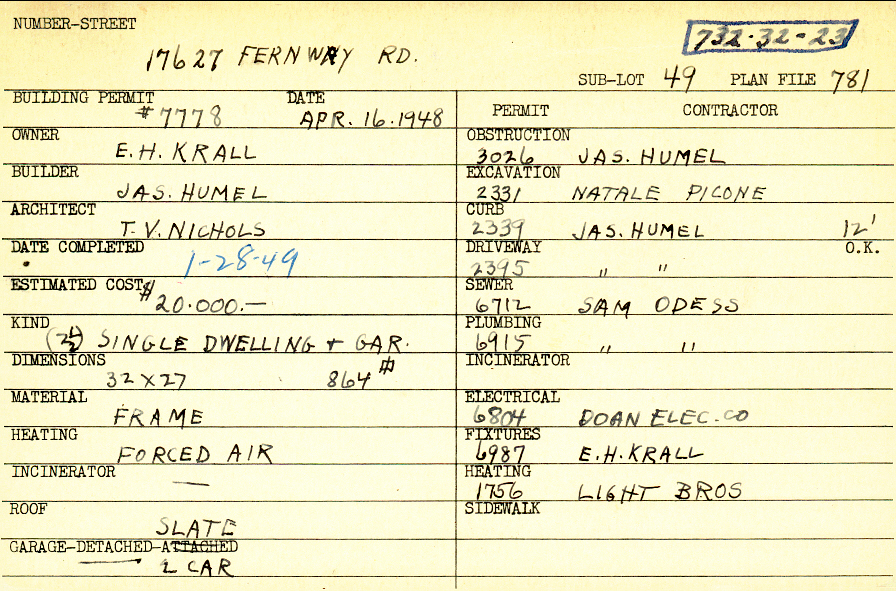 NUMBER-STREET
17627 FERNWAY RD.
732-32-23
SUB-LOT 49 PLAN FILE 781
BUILDING PERMIT DATE
#7778 APR. 16.1948
OWNER
E.H. KRALL
BUILDER
JAS. HUMEL
ARCHITECT
T. V. NICHOLS
DATE COMPLETED
1-28-49
ESTIMATED COST
$20.000.—
KIND
(2½) SINGLE DWELLING + GAR.
DIMENSIONS
32 X 27 864 #
MATERIAL
FRAME
HEATING
FORCED AIR
INCINERATOR
—
ROOF
SLATE
GARAGE-DETACHED-ATTACHED
2 CAR
PERMIT CONTRACTOR
OBSTRUCTION
3026 JAS. HUMEL
EXCAVATION
2331 NATALE PICONE
CURB
2339 JAS. HUMEL 12'
DRIVEWAY O.K.
2395 " "
SEWER
6712 SAM ODESS
PLUMBING
6915 " "
INCINERATOR
ELECTRICAL
6804 DOAN ELEC. CO
FIXTURES
6987 E.H. KRALL
HEATING
1756 LIGHT BROS
SIDEWALK